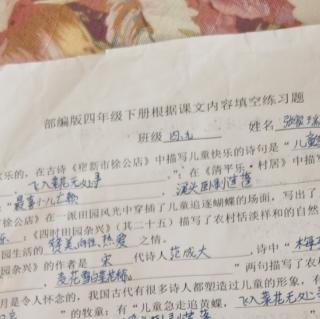 部编版四年级下册根据课文内容填空练习题
班级 四 姓名
快乐的，在古诗《宿新市徐公店》中描写儿童快乐的诗句是“儿童
，飞入菜花无处寻 ”，在《清平乐·村居》中描写
：“最喜小儿亡赖 ， 溪头卧剥莲蓬
市徐公店》在一派田园风光中穿插了儿童追逐蝴蝶的场面，写出了
乐；《四时田园杂兴》（其二十五）描写了农村恬淡祥和的自然
园生活的 赞美向往,热爱 之情。
田园杂兴》的作者是 宋 代诗人 范成大 ，诗中“梅
， 麦花雪白菜花稀 ”两句描写了农村
月是令人怀念的，我国古代有很多诗人都塑造过儿童的形象，有
”的牧童；有“儿童急走追黄蝶， 飞入菜花无处寻